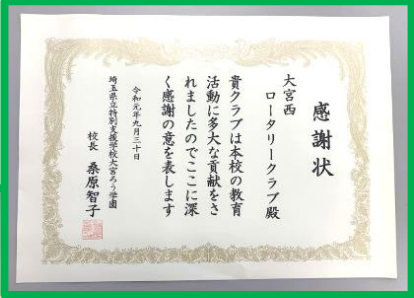 感謝状
大宮西
ロータリークラブ殿
貴クラブは本校の教育
活動に多大な貢献をさ
れましたのでここに深
く感謝の意を表します
令和元年九月三十日
埼玉県立特別支援学校大宮ろう学園
校長 桑原智子